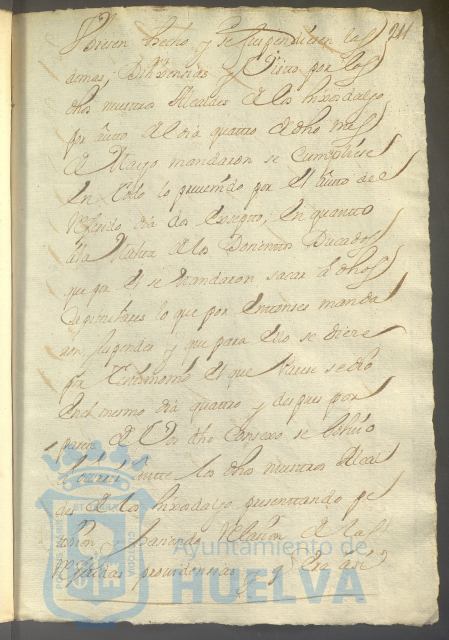 211
hecho y se suspendiesen las
demas, Dilixensias y Vista por los
dhos nuestros Alcaldes de los hixosdalgo
por auto del dia quatro de dho mes
de Mayo mandaron se Cumpliese
En todo lo prevenido por el auto de
Referido dia dos Exsepto, En quanto
a la Multa de los Doscientos Ducados
que por el se Mandaron sacar a dhos
Capitulares lo que por Entonses manda
ron suspender y que para Ello se diese
por testimonio el que Parese se dio
En el mismo dia quatro y despues por
parte de Vos dho Consexo se bolvio
a ocurrir Ante los dhos nuestros Alcal
des de los hixosdalgo presentando pe
tision, y haziendo Relasion de las
Referidas providensias, y q Era asi
Ayuntamiento de
HUELVA